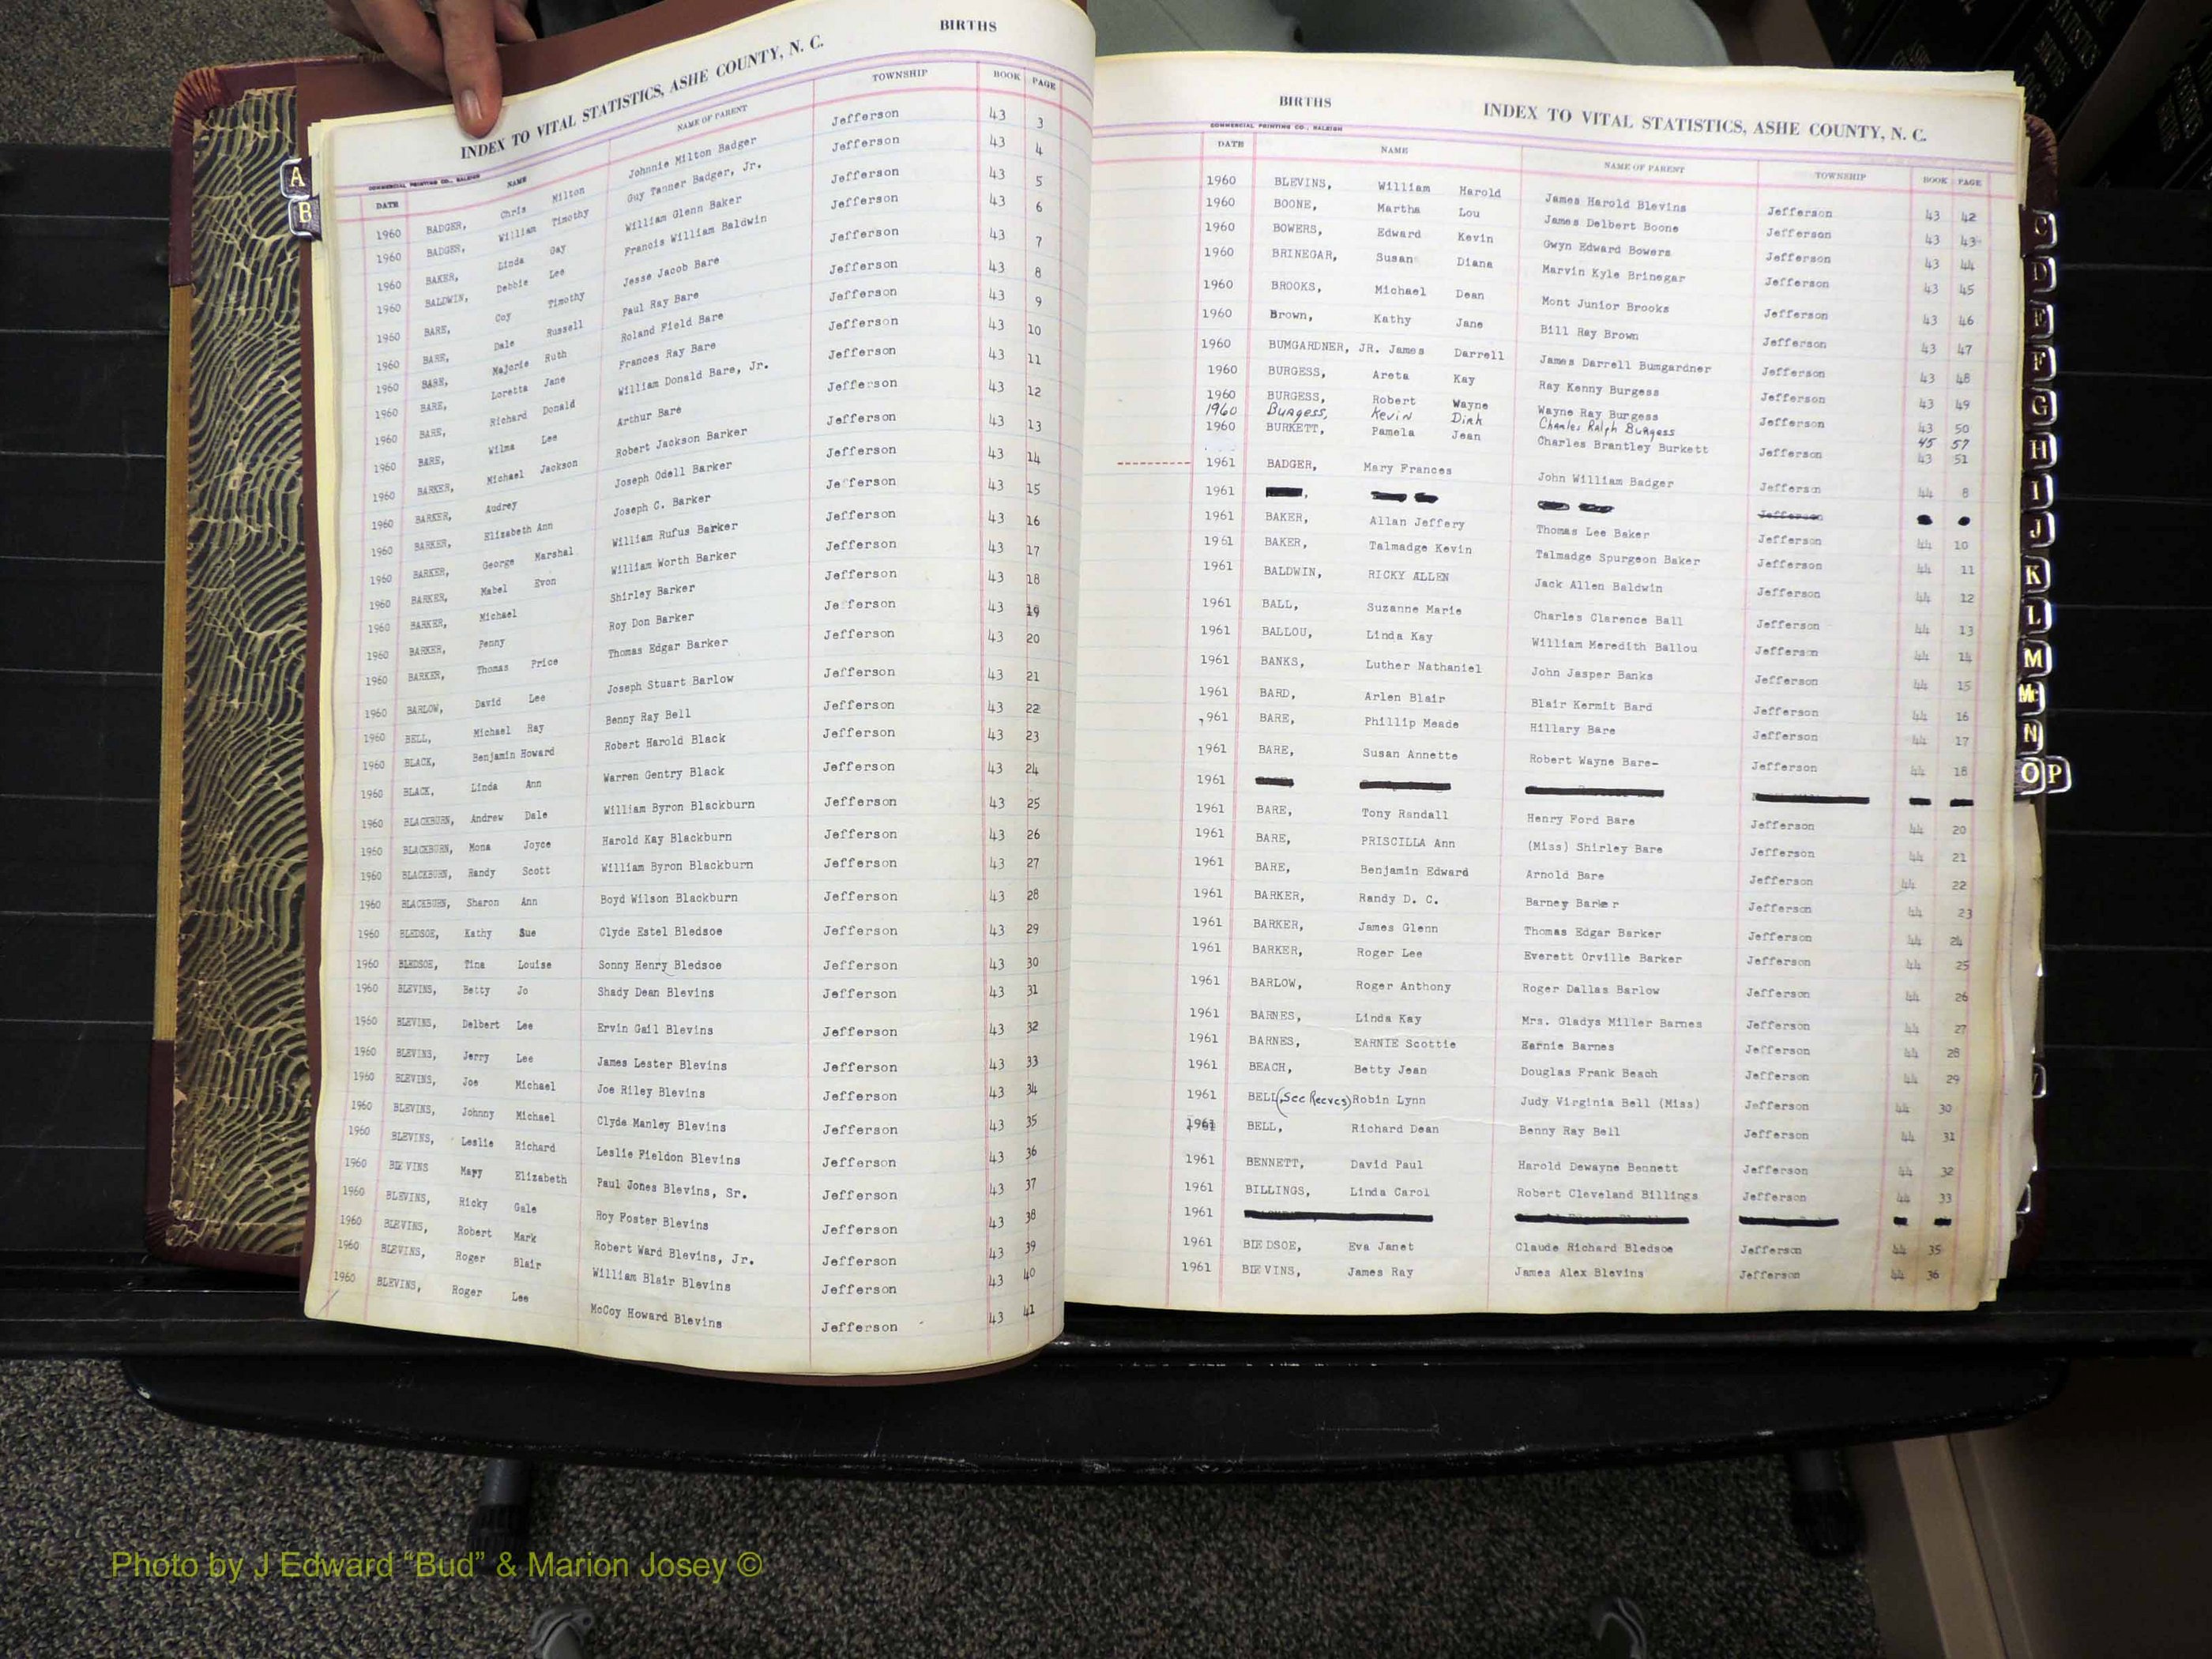 BIRTHS
INDEX TO VITAL STATISTICS, ASHE COUNTY, N. C.
COMMERCIAL PRINTING CO., RALEIGH
DATE NAME NAME OF PARENT TOWNSHIP BOOK PAGE
1960 BADGER, Chris Milton Johnnie Milton Badger Jefferson 43 3
1960 BADGER, William Timothy Guy Tanner Badger, Jr. Jefferson 43 4
1960 BAKER, Linda Gay William Glenn Baker Jefferson 43 5
1960 BALDWIN, Debbie Lee Francis William Baldwin Jefferson 43 6
1960 BARE, Coy Timothy Jesse Jacob Bare Jefferson 43 7
1960 BARE, Dale Russell Paul Ray Bare Jefferson 43 8
1960 BARE, Majorie Ruth Roland Field Bare Jefferson 43 9
1960 BARE, Loretta Jane Frances Ray Bare Jefferson 43 10
1960 BARE, Richard Donald William Donald Bare, Jr. Jefferson 43 11
1960 BARE, Wilma Lee Arthur Bare Jefferson 43 12
1960 BARKER, Michael Jackson Robert Jackson Barker Jefferson 43 13
1960 BARKER, Audrey Joseph Odell Barker Jefferson 43 14
1960 BARKER, Elizabeth Ann Joseph C. Barker Jefferson 43 15
1960 BARKER, George Marshal William Rufus Barker Jefferson 43 16
1960 BARKER, Mabel Evon William Worth Barker Jefferson 43 17
1960 BARKER, Michael Shirley Barker Jefferson 43 18
1960 BARKER, Penny Roy Don Barker Jefferson 43 19
1960 BARKER, Thomas Price Thomas Edgar Barker Jefferson 43 20
1960 BARLOW, David Lee Joseph Stuart Barlow Jefferson 43 21
1960 BELL, Michael Ray Benny Ray Bell Jefferson 43 22
1960 BLACK, Benjamin Howard Robert Harold Black Jefferson 43 23
1960 BLACK, Linda Ann Warren Gentry Black Jefferson 43 24
1960 BLACKBURN, Andrew Dale William Byron Blackburn Jefferson 43 25
1960 BLACKBURN, Mona Joyce Harold Kay Blackburn Jefferson 43 26
1960 BLACKBURN, Randy Scott William Byron Blackburn Jefferson 43 27
1960 BLACKBURN, Sharon Ann Boyd Wilson Blackburn Jefferson 43 28
1960 BLEDSOE, Kathy Sue Clyde Estel Bledsoe Jefferson 43 29
1960 BLEDSOE, Tina Louise Sonny Henry Bledsoe Jefferson 43 30
1960 BLEVINS, Betty Jo Shady Dean Blevins Jefferson 43 31
1960 BLEVINS, Delbert Lee Ervin Gail Blevins Jefferson 43 32
1960 BLEVINS, Jerry Lee James Lester Blevins Jefferson 43 33
1960 BLEVINS, Joe Michael Joe Riley Blevins Jefferson 43 34
1960 BLEVINS, Johnny Michael Clyde Manley Blevins Jefferson 43 35
1960 BLEVINS, Leslie Richard Leslie Fieldon Blevins Jefferson 43 36
1960 BLEVINS Mary Elizabeth Paul Jones Blevins, Sr. Jefferson 43 37
1960 BLEVINS, Ricky Gale Roy Foster Blevins Jefferson 43 38
1960 BLEVINS, Robert Mark Robert Ward Blevins, Jr. Jefferson 43 39
1960 BLEVINS, Roger Blair William Blair Blevins Jefferson 43 40
1960 BLEVINS, Roger Lee McCoy Howard Blevins Jefferson 43 41
A
B
BIRTHS
INDEX TO VITAL STATISTICS, ASHE COUNTY, N. C.
COMMERCIAL PRINTING CO., RALEIGH
DATE NAME NAME OF PARENT TOWNSHIP BOOK PAGE
1960 BLEVINS, William Harold James Harold Blevins Jefferson 43 42
1960 BOONE, Martha Lou James Delbert Boone Jefferson 43 43
1960 BOWERS, Edward Kevin Gwyn Edward Bowers Jefferson 43 44
1960 BRINEGAR, Susan Diana Marvin Kyle Brinegar Jefferson 43 45
1960 BROOKS, Michael Dean Mont Junior Brooks Jefferson 43 46
1960 Brown, Kathy Jane Bill Ray Brown Jefferson 43 47
1960 BUMGARDNER, JR. James Darrell James Darrell Bumgardner Jefferson 43 48
1960 BURGESS, Areta Kay Ray Kenny Burgess Jefferson 43 49
1960 BURGESS, Robert Wayne Wayne Ray Burgess Jefferson 43 50
1960 Burgess, Kevin Dirk Charles Ralph Burgess 45 57
1960 BURKETT, Pamela Jean Charles Brantley Burkett Jefferson 43 51
1961 BADGER, Mary Frances John William Badger Jefferson 44 8
1961 Jefferson
1961 BAKER, Allan Jeffery Thomas Lee Baker Jefferson 44 10
1961 BAKER, Talmadge Kevin Talmadge Spurgeon Baker Jefferson 44 11
1961 BALDWIN, RICKY ALLEN Jack Allen Baldwin Jefferson 44 12
1961 BALL, Suzanne Marie Charles Clarence Ball Jefferson 44 13
1961 BALLOU, Linda Kay William Meredith Ballou Jefferson 44 14
1961 BANKS, Luther Nathaniel John Jasper Banks Jefferson 44 15
1961 BARD, Arlen Blair Blair Kermit Bard Jefferson 44 16
1961 BARE, Phillip Meade Hillary Bare Jefferson 44 17
1961 BARE, Susan Annette Robert Wayne Bare- Jefferson 44 18
1961
1961 BARE, Tony Randall Henry Ford Bare Jefferson 44 20
1961 BARE, PRISCILLA Ann (Miss) Shirley Bare Jefferson 44 21
1961 BARE, Benjamin Edward Arnold Bare Jefferson 44 22
1961 BARKER, Randy D. C. Barney Barker Jefferson 44 23
1961 BARKER, James Glenn Thomas Edgar Barker Jefferson 44 24
1961 BARKER, Roger Lee Everett Orville Barker Jefferson 44 25
1961 BARLOW, Roger Anthony Roger Dallas Barlow Jefferson 44 26
1961 BARNES, Linda Kay Mrs. Gladys Miller Barnes Jefferson 44 27
1961 BARNES, EARNIE Scottie Earnie Barnes Jefferson 44 28
1961 BEACH, Betty Jean Douglas Frank Beach Jefferson 44 29
1961 BELL (See Reeves) Robin Lynn Judy Virginia Bell (Miss) Jefferson 44 30
1961 BELL, Richard Dean Benny Ray Bell Jefferson 44 31
1961 BENNETT, David Paul Harold Dewayne Bennett Jefferson 44 32
1961 BILLINGS, Linda Carol Robert Cleveland Billings Jefferson 44 33
1961
1961 BLEDSOE, Eva Janet Claude Richard Bledsoe Jefferson 44 35
1961 BLEVINS, James Ray James Alex Blevins Jefferson 44 36
C
D
E
F
G
H
I
J
K
L
M
Mc
N
O P
Photo by J Edward "Bud" & Marion Josey ©